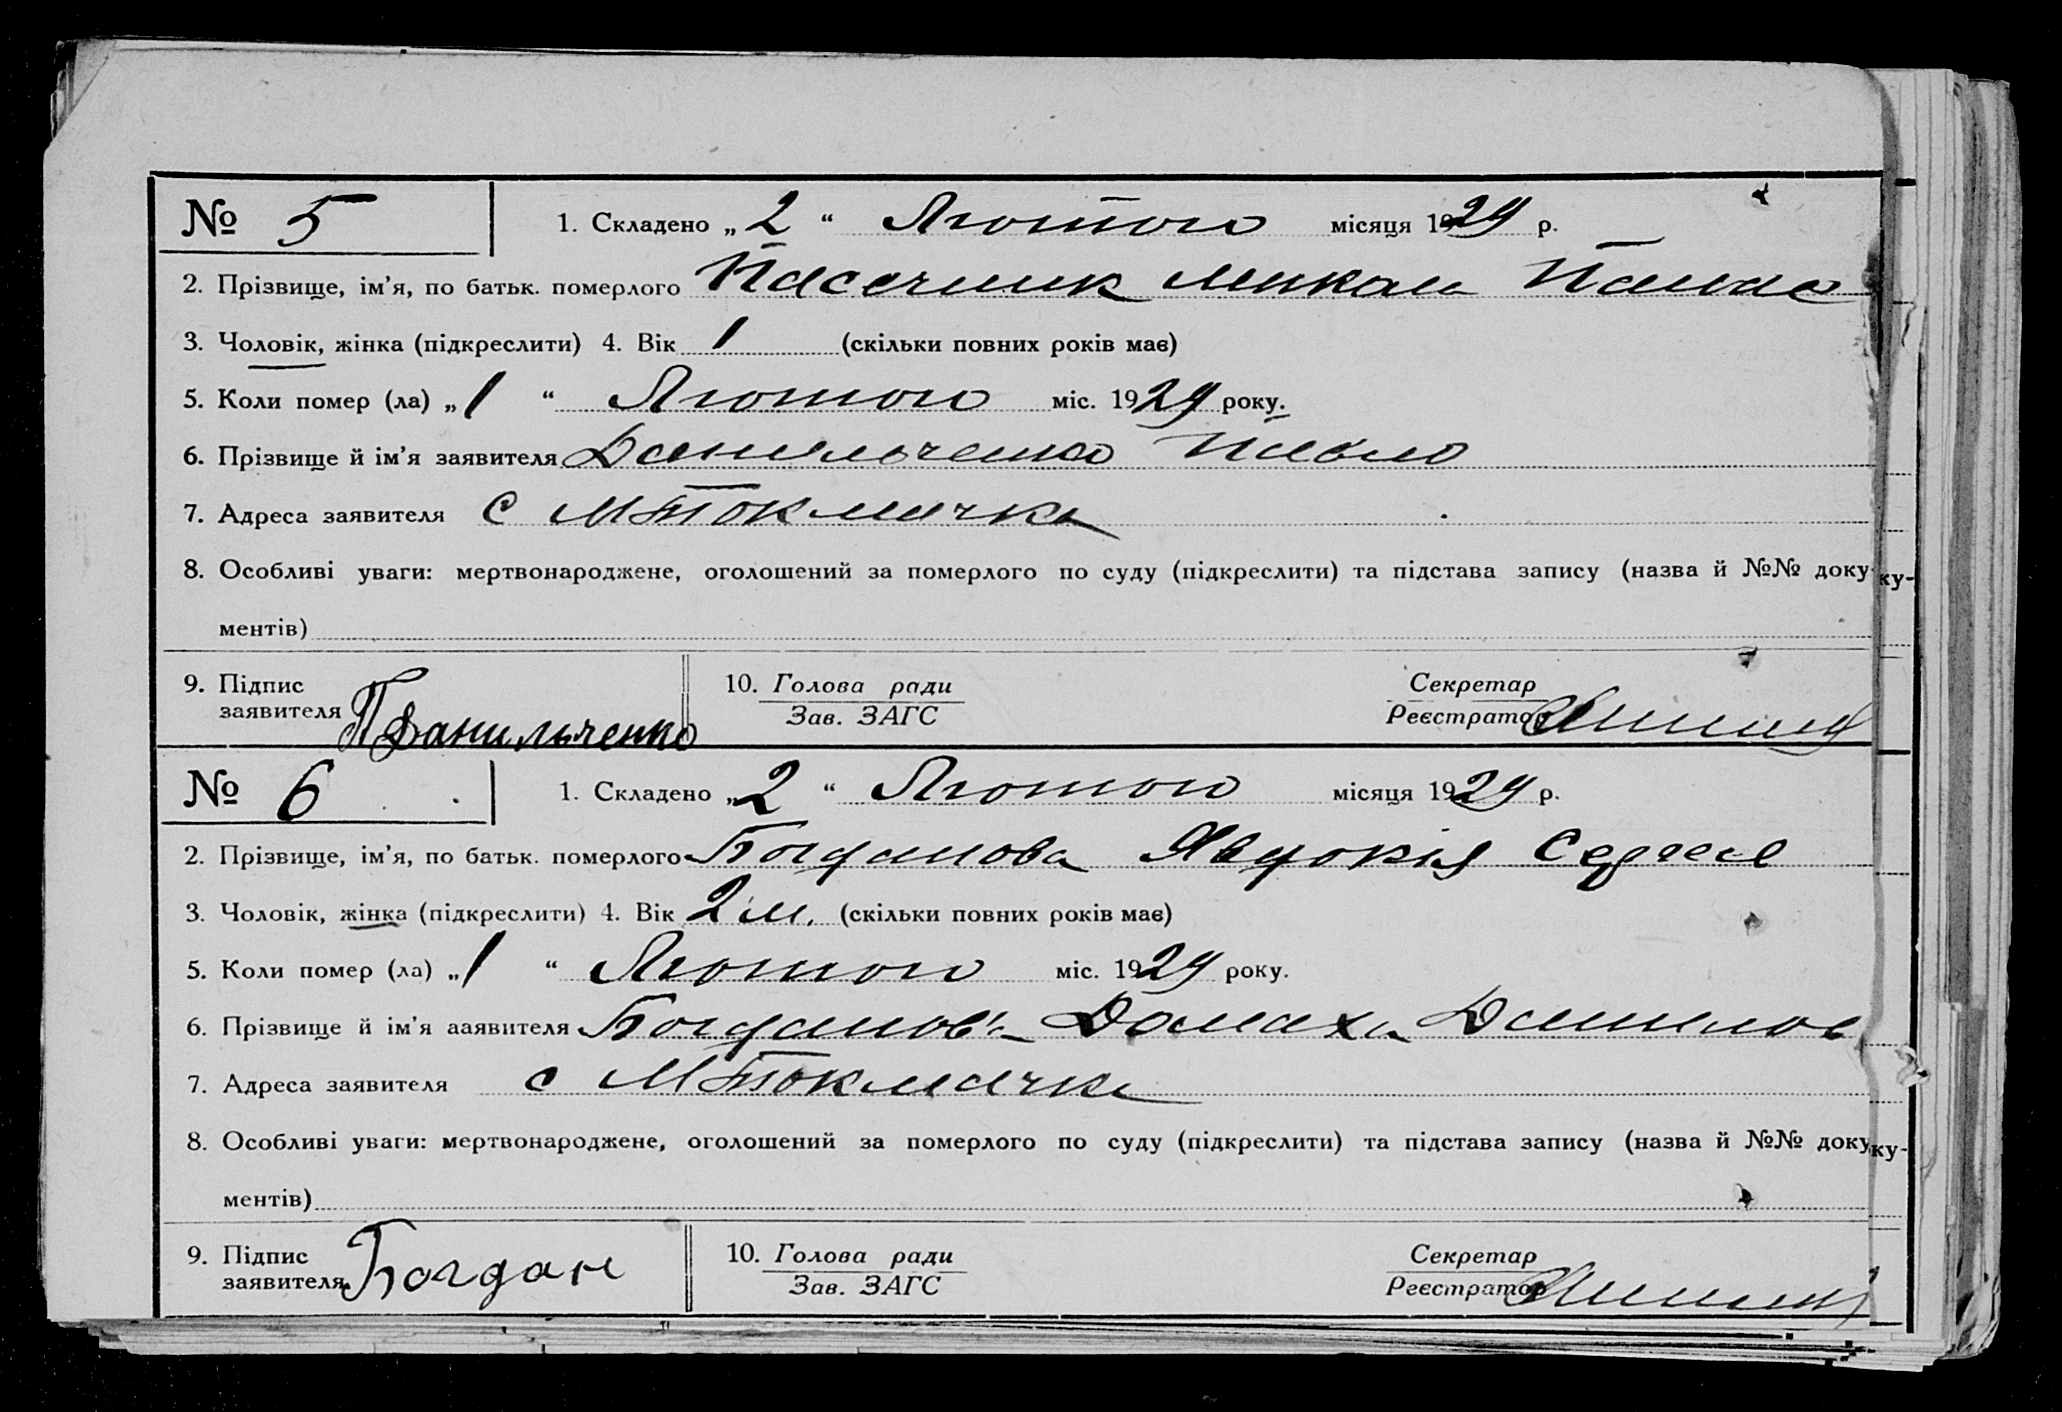 № 5 1. Складено „2“ Лютого місяця 1929 р.
2. Прізвище, ім’я, по батьк. померлого Пасечник Микола Панас
3. Чоловік, жінка (підкреслити) 4. Вік 1 (скільки повних років має)
5. Коли помер (ла) „1“ Лютого міс. 1929 року.
6. Прізвище й ім’я заявителя Данильченко Павло
7. Адреса заявителя с МТокмачка
8. Особливі уваги: мертвонароджене, оголошений за померлого по суду (підкреслити) та підстава запису (назва й №№ доку ку-
ментів)
9. Підпис 10. Голова ради Секретар
заявителя П Данильченко Зав. ЗАГС Реєстратор
№ 6 1. Складено „2“ Лютого місяця 1929 р.
2. Прізвище, ім’я, по батьк. померлого Богданова Явдокія Сергеев
3. Чоловік, жінка (підкреслити) 4. Вік 2 м. (скільки повних років має)
5. Коли помер (ла) „1“ Лютого міс. 1929 року.
6. Прізвище й ім’я ааявителя Богданова Домаха Данилов
7. Адреса заявителя с МТокмачка
8. Особливі уваги: мертвонароджене, оголошений за померлого по суду (підкреслити) та підстава запису (назва й №№ доку ку-
ментів)
9. Підпис 10. Голова ради Секретар
заявителя Богдан Зав. ЗАГС Реєстратор